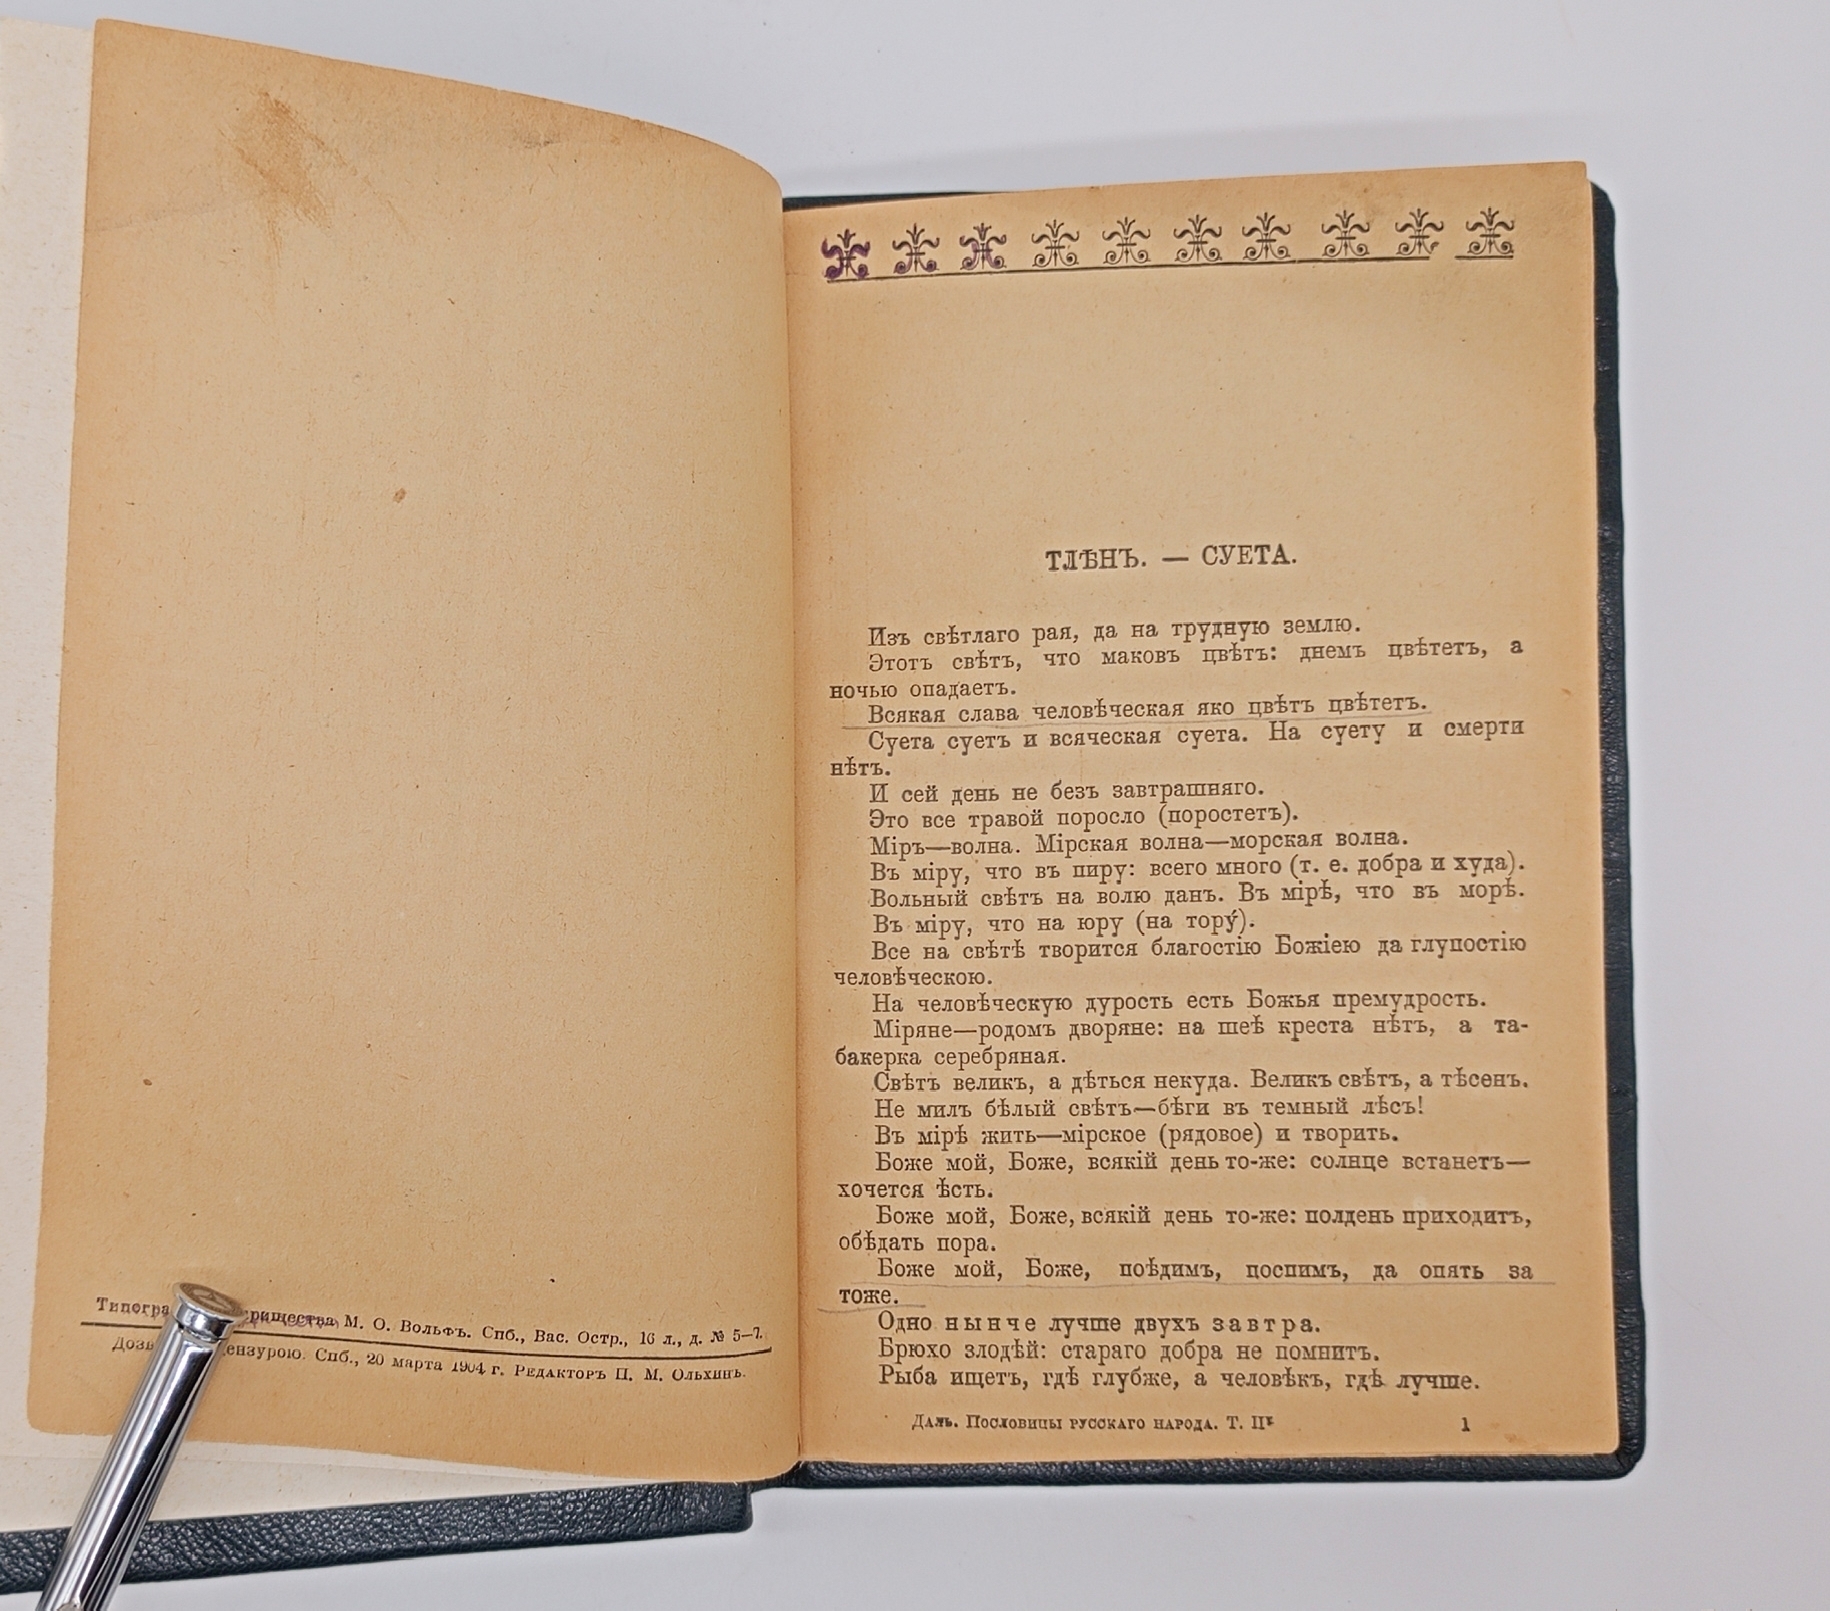 Типогра рищества М. О. Вольфъ. Спб., Вас. Остр., 16 л., д. № 5—7.
Дозв ензурою. Спб., 20 марта 1904 г. Редакторъ П. М. Ольхинъ.
ТЛѢНЪ. — СУЕТА.
Изъ свѣтлаго рая, да на трудную землю.
Этотъ свѣтъ, что маковъ цвѣтъ: днемъ цвѣтетъ, а
ночью опадаетъ.
Всякая слава человѣческая яко цвѣтъ цвѣтетъ.
Суета суетъ и всяческая суета. На суету и смерти
нѣтъ.
И сей день не безъ завтрашняго.
Это все травой поросло (поростетъ).
Міръ—волна. Мірская волна—морская волна.
Въ міру, что въ пиру: всего много (т. е. добра и худа).
Вольный свѣтъ на волю данъ. Въ мірѣ, что въ морѣ.
Въ міру, что на юру (на тору́).
Все на свѣтѣ творится благостію Божіею да глупостію
человѣческою.
На человѣческую дурость есть Божья премудрость.
Міряне—родомъ дворяне: на шеѣ креста нѣтъ, а та-
бакерка серебряная.
Свѣтъ великъ, а дѣться некуда. Великъ свѣтъ, а тѣсенъ.
Не милъ бѣлый свѣтъ—бѣги въ темный лѣсъ!
Въ мірѣ жить—мірское (рядовое) и творить.
Боже мой, Боже, всякій день то-же: солнце встанетъ—
хочется ѣсть.
Боже мой, Боже, всякій день то-же: полдень приходитъ,
обѣдать пора.
Боже мой, Боже, поѣдимъ, поспимъ, да опять за
тоже.
Одно нынче лучше двухъ завтра.
Брюхо злодѣй: стараго добра не помнитъ.
Рыба ищетъ, гдѣ глубже, а человѣкъ, гдѣ лучше.
Даль. Пословицы русскаго народа. Т. II 1